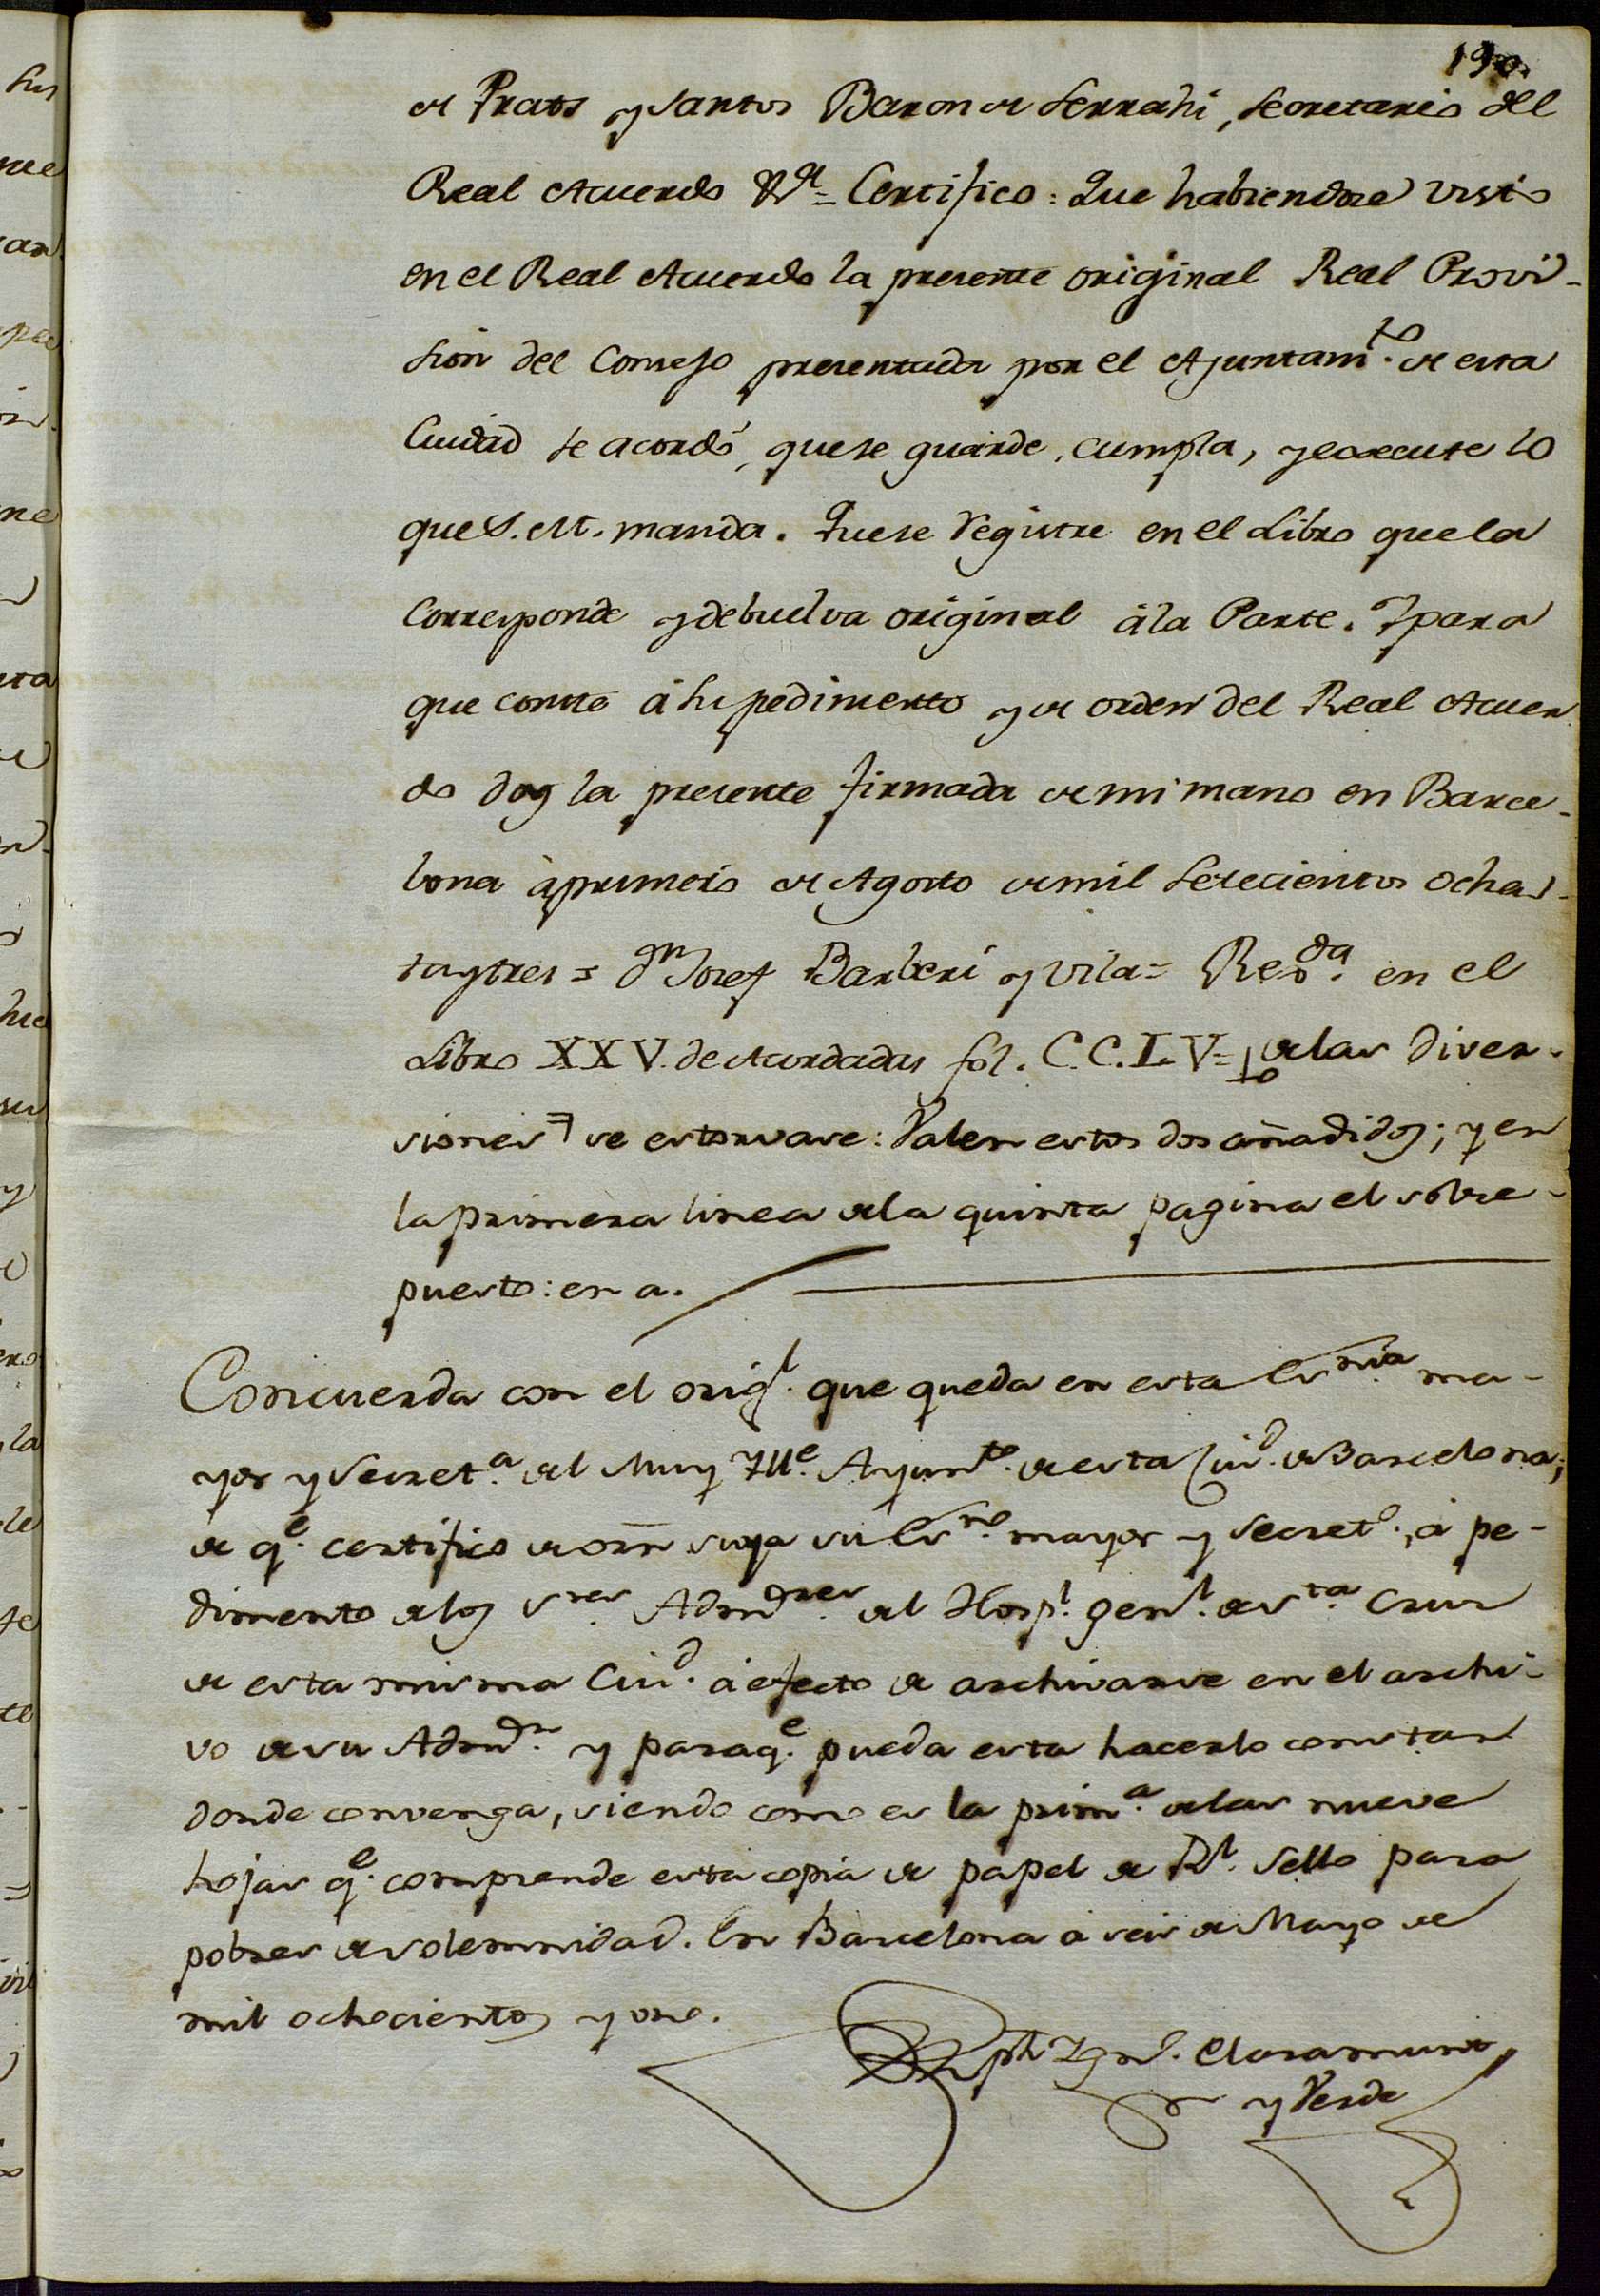 190
de Prats y Santos Baron de Serrahi, Secretario del
Real Acuerdo &ª = Certifico: Que habiendose visto
en el Real Acuerdo la presente original Real Provi-
sion del Consejo presentada por el Ajuntamto. de esta
Ciudad se acordó, que se guarde, cumpla, y execute lo
que S. M. manda. Que se registre en el Libro que la
corresponde y debuelva original á la Parte. Y para
que conste á su pedimento y de orden del Real Acuer
do doy la presente firmada de mi mano en Barce-
lona à primero de Agosto de mil setecientos ochen-
ta y tres = Dn Josef Barberi y Vila = Reda. en el
Libro XXV. de Acordadas fol. C.C.L.V = de las diver-
siones se estorvase: Valen estos dos añadidos; y en
la primera linea de la quinta pagina el sobre-
puesto: en a.
Concuerda con el origl. que queda en esta Esnia. ma-
yor y Secreta. del Muy Ille. Ayunto. de esta Ciud. de Barcelona;
de qe. certifico de orn suya su Esno. mayor y Secreto., á pe-
dimento de los Sres. Admdres. del Hospl. genl. de Sta. Crus
de esta misma Ciud. á efecto de archivarse en el archi-
vo de su Admdn. y paraqe. pueda esta hacerlo constar
donde convenga, siendo como es la prima. de las nueve
hojas qe. comprende esta copia de papel de Rl. Sello para
pobres de solemnidad. En Barcelona á seis de Mayo de
mil ochocientos y one.
Jph Ignº. Claramunt
y Verde